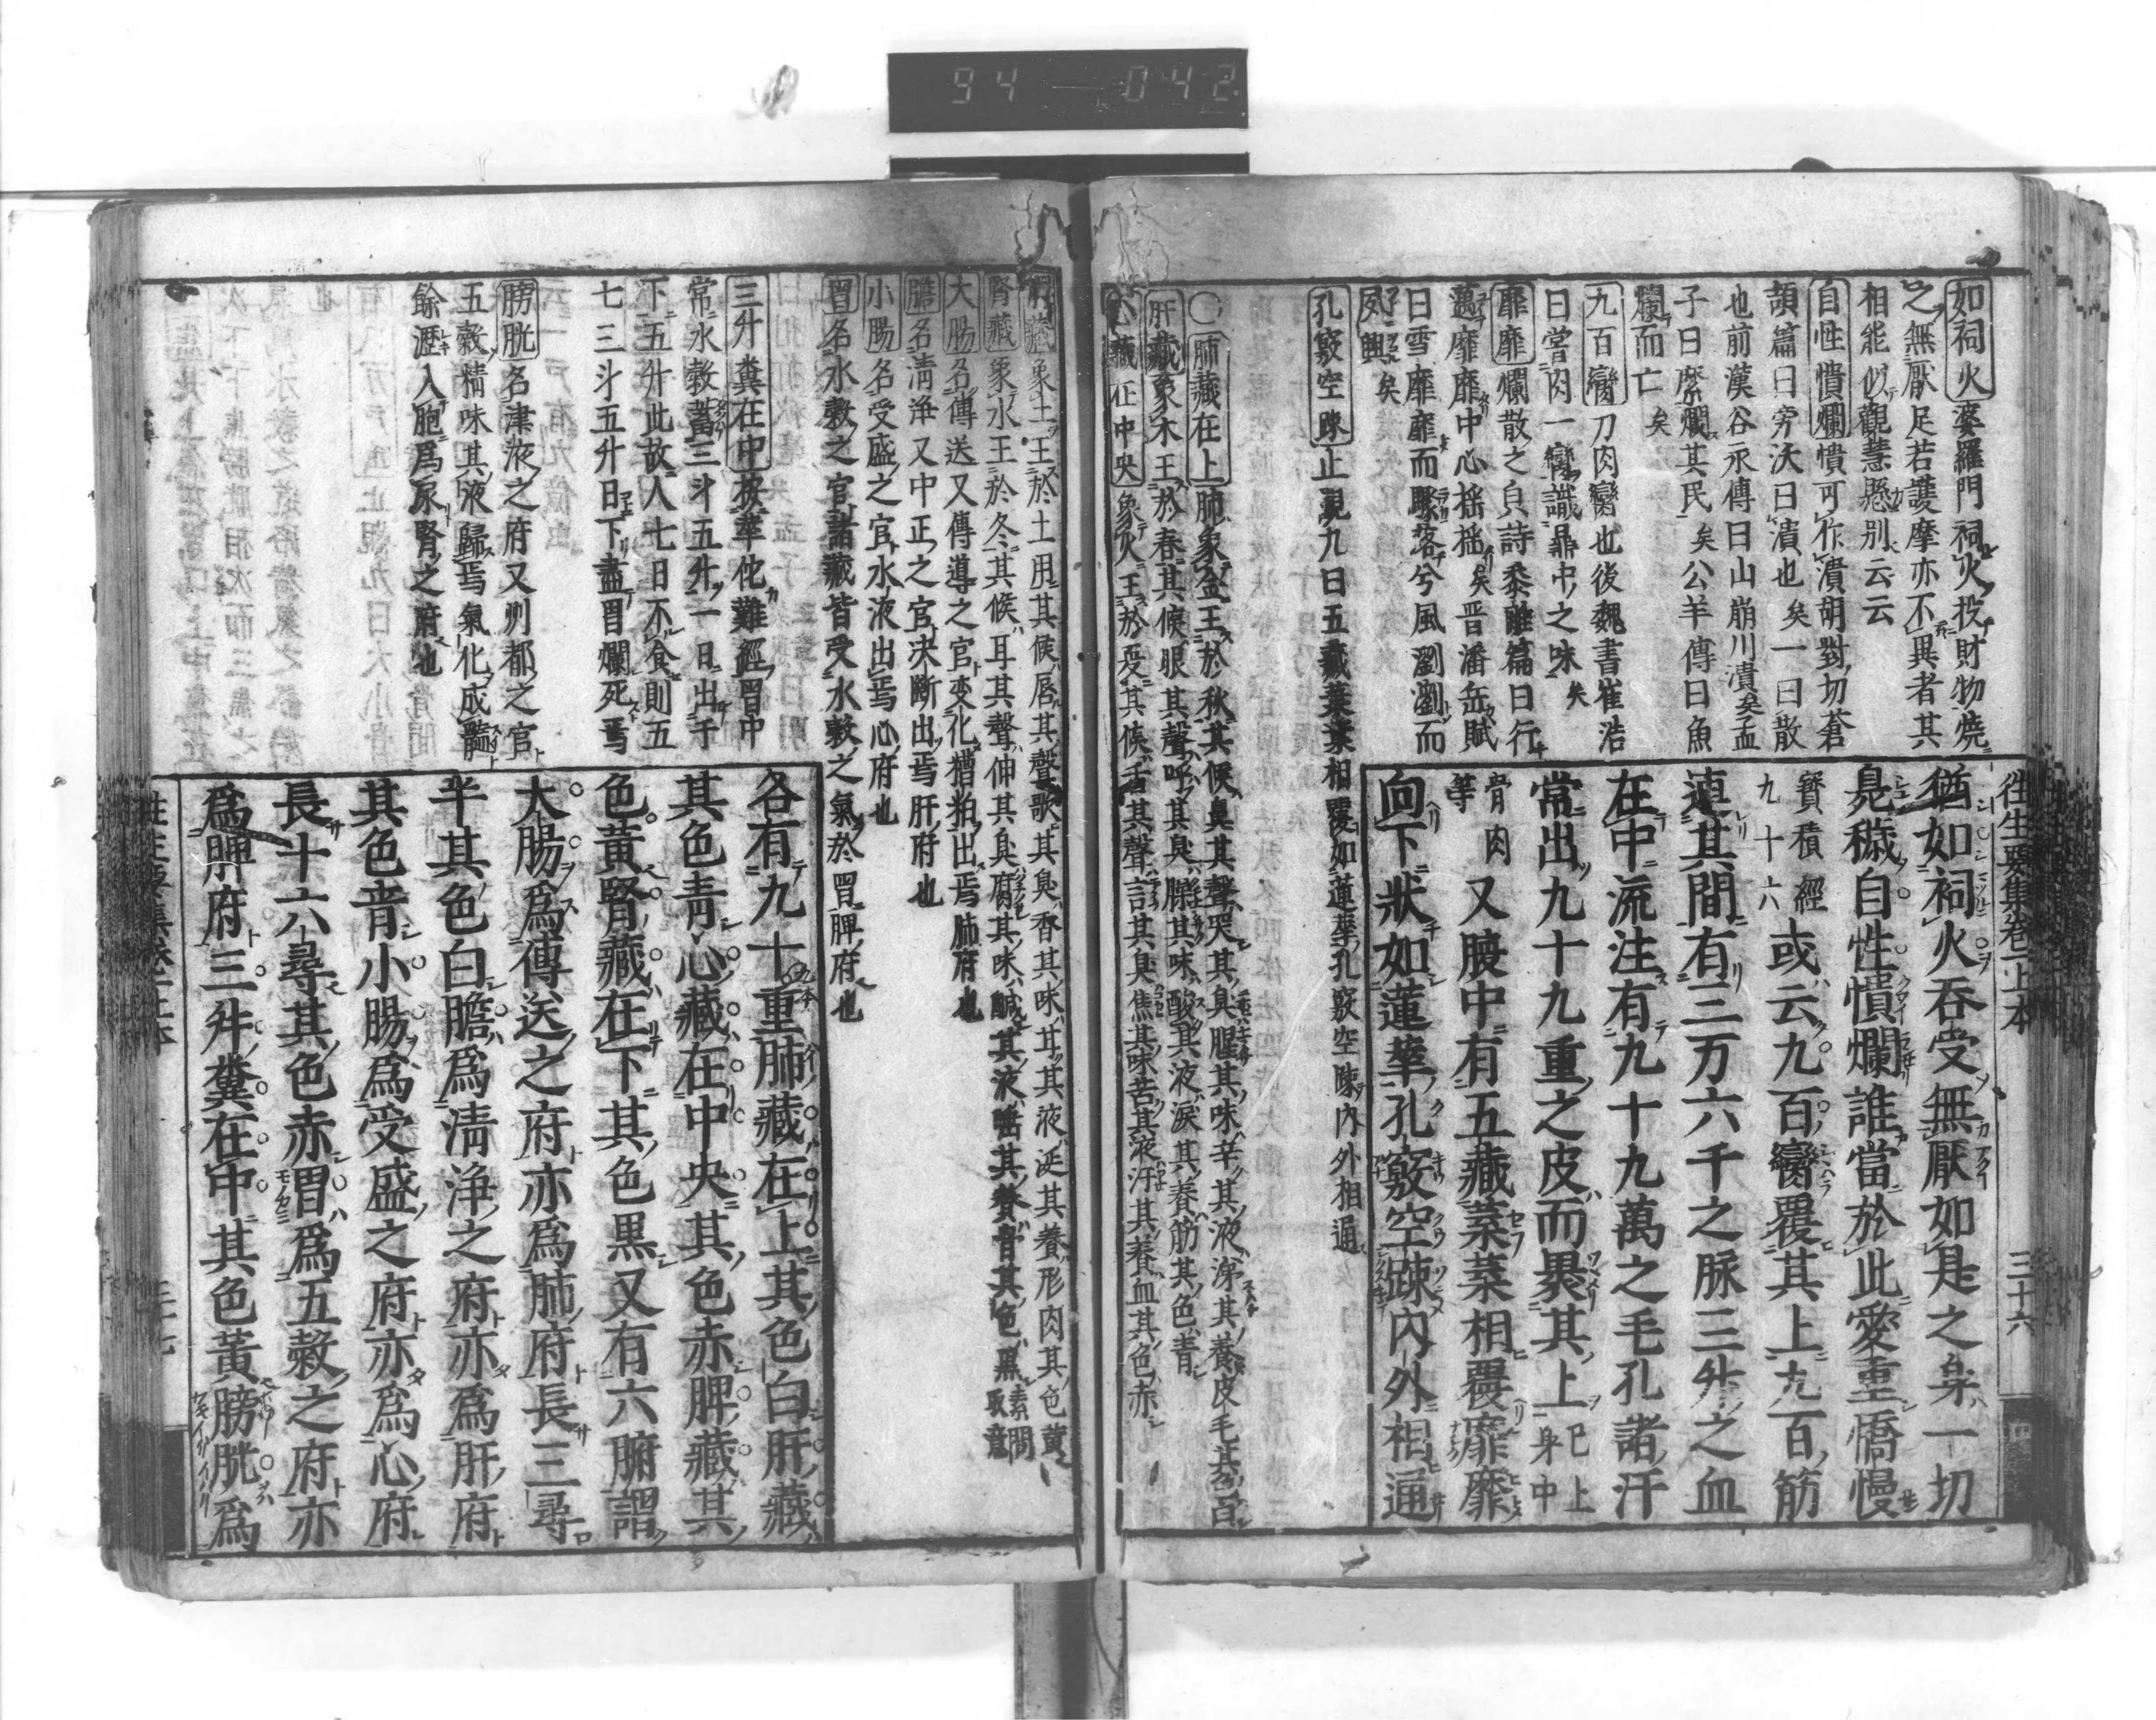 94 042
往生要集卷上本 三十六
如祠火 婆羅門祠火投財物燒
之無厭足若護摩亦不異者其
相能似觀慧懸別云云
自性憒爛 憒可作潰胡對切蒼
頡篇曰旁決曰潰也矣一曰散
也前漢谷永傳曰山崩川潰矣孟
子曰糜爛其民矣公羊傳曰魚
爛而亡矣
九百臠 刀肉臠也後魏書崔浩
曰嘗肉一臠識鼎中之味矣
靡靡 爛散之皃詩黍離篇曰行
邁靡靡中心揺揺矣晋潘岳賦
曰雪靡靡而驟落兮風瀏瀏而
夙興矣
孔竅空踈 止觀九曰五藏葉葉相覆如蓮華孔竅空踈內外相通
○肺藏在上 肺象金王於秋其候鼻其聲哭其臭腥其味辛其液涕其養皮毛其色白
肝藏 象木王於春其候眼其聲呼其臭臊其味酸其液淚其養筋其色青
心藏在中央 象火王於夏其候舌其聲言其臭焦其味苦其液汗其養血其色赤
猶如祠火吞受無厭如是之身一切
臭穢自性憒爛誰當於此愛重憍慢
寶積經九十六 或云九百臠覆其上九百筋
連其間有三万六千之脉三舛之血
在中流注有九十九萬之毛孔諸汗
常出九十九重之皮而褁其上 已上身中
骨肉等 又腹中有五藏葉葉相覆靡靡
向下狀如蓮華孔竅空踈內外相通
脾藏 象土王於土用其候唇其聲歌其臭香其味甘其液涎其養形肉其色黄
腎藏 象水王於冬其候耳其聲伸其臭腐其味鹹其液唾其養骨其色黑 素問取意
大腸 名傳送又傳導之官変化糟粕出焉肺府也
膽 名淸浄又中正之官決斷出焉肝府也
小腸 名受盛之官水液出焉心府也
胃 名水穀之官諸藏皆受水穀之氣於胃脾府也
三升糞在中 按華佗難經胃中
常水穀蓄三斗五升一日出于
下五升此故人七日不食則五
七三斗五升日下盡胃爛死焉
膀胱 名津液之府又州都之官
五穀精味其液歸焉氣化成髓
餘瀝入胞爲尿腎之府也
各有九十重肺藏在上其色白肝藏
其色靑心藏在中央其色赤脾藏其
色黃腎藏在下其色黑又有六腑謂
大腸爲傳送之府亦爲肺府長三尋
半其色白膽爲淸浄之府亦爲肝府
其色青小腸爲受盛之府亦爲心府
長十六尋其色赤胃爲五穀之府亦
爲脾府三舛糞在中其色黃膀胱爲